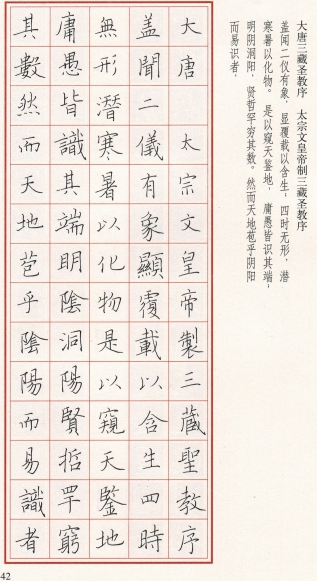 大唐三藏圣教序　太宗文皇帝制三藏圣教序
盖闻二仪有象，显覆载以含生，四时无形，潜
寒暑以化物。是以窥天鉴地，庸愚皆识其端，
明阴洞阳，贤哲罕穷其数。然而天地苞乎阴阳
而易识者，
大唐太宗文皇帝製三藏聖教序
盖聞二儀有象顯覆載以含生四時
無形潛寒暑以化物是以窺天鑒地
庸愚皆識其端明陰洞陽賢哲罕窮
其數然而天地苞乎陰陽而易識者
42